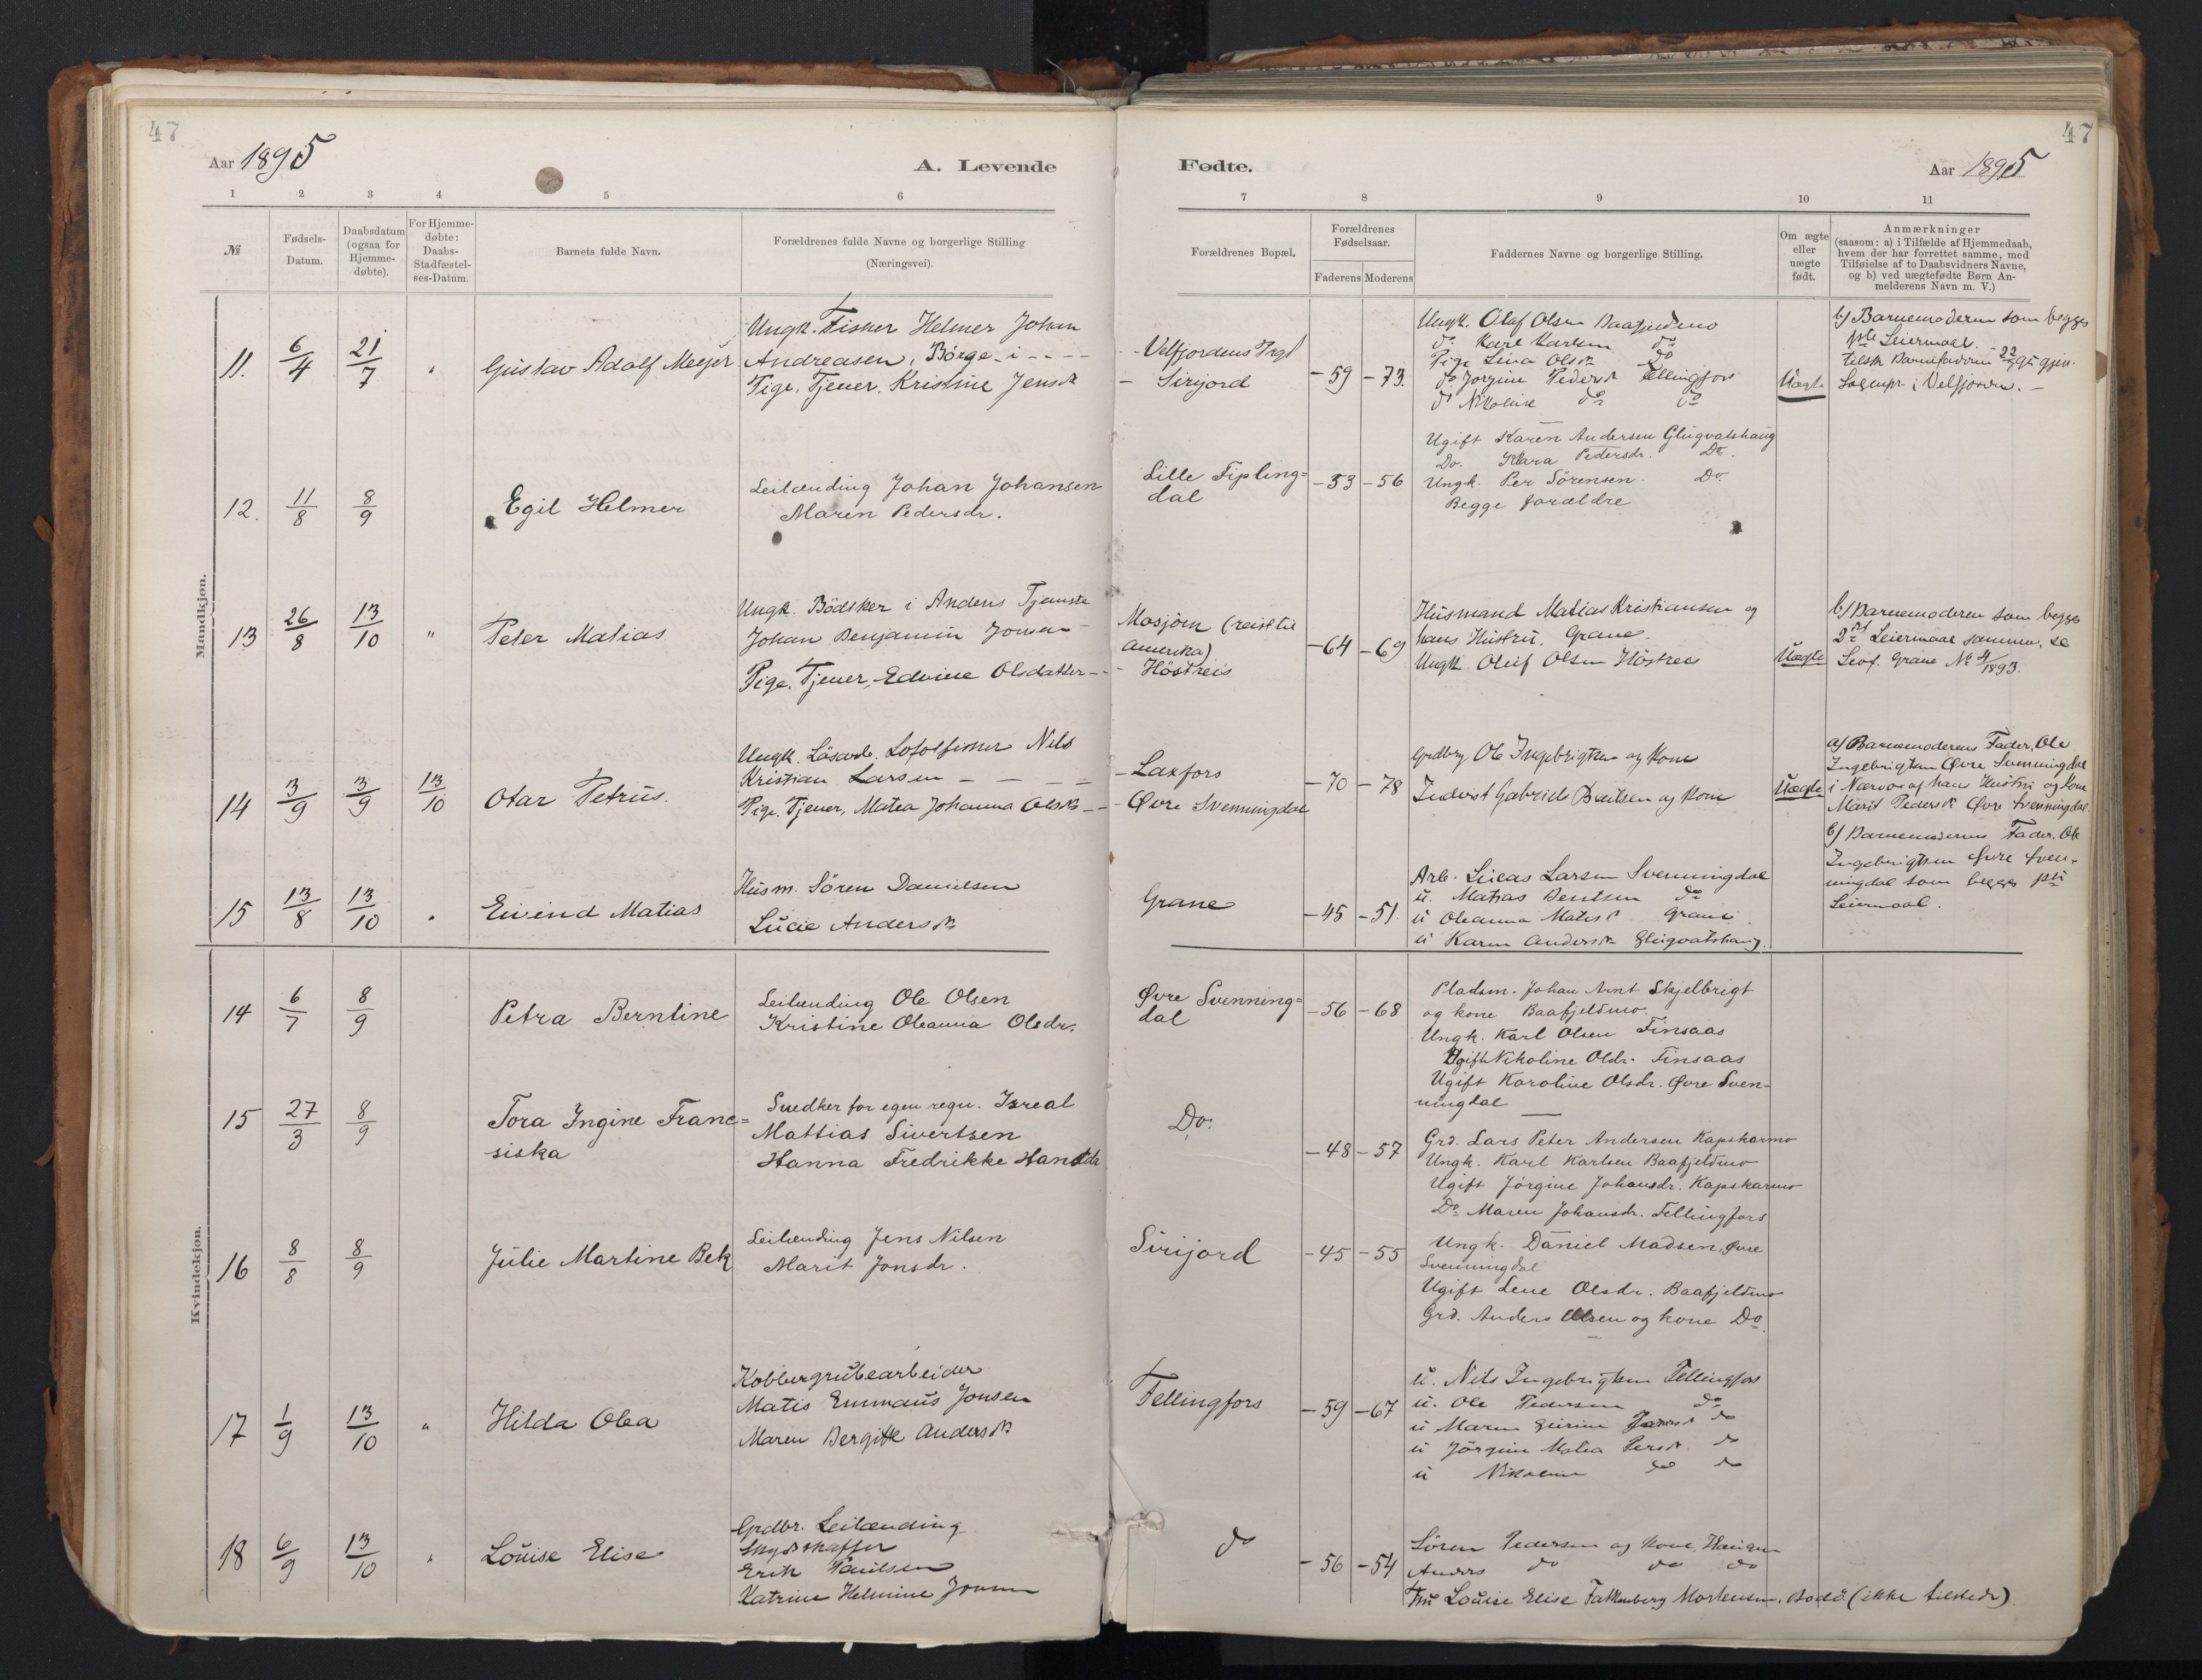 47
Aar 1895
A. Levende
1 2 3 4 5 6
№
Fødsels-
Datum.
Daabsdatum
(ogsaa for
Hjemme-
døbte).
For Hjemme-
døbte:
Daabs-
Stadfæstel-
ses-Datum.
Barnets fulde Navn.
Forældrenes fulde Navne og borgerlige Stilling
(Næringsvei).
Mandkjøn.
11. 6/4 21/7 "
Gustav Adolf Meyer
Ungk. Fisker Helmer Johan
Andreasen, Börge i - - - -
Pige, Tjener, Kristine Jensd.
12. 11/8 8/9
Egil Helmer
Leilænding Johan Johansen
Maren Pedersdr.
13 26/8 13/10 "
Peter Matias
Ungk. Bödsker i Andens Tjeneste
Johan Benjamin Jonsen
Pige. Tjener, Edvine Olsdatter - -
14 3/9 3/9 13/10
Otar Petrus.
Ungk. Lösarb. Lofotfisker Nils
Kristian Larsen - - -
Pige. Tjener, Matea Johanna Olsd. - -
15 13/8 13/10 "
Eivind Matias
Husm. Sören Danielsen
Lucie Andersd.
Kvindekjøn.
14 6/7 8/9
Petra Berntine
Leilænding Ole Olsen
Kristine Oleanna Olsdr.
15 27/3 8/9
Tora Ingine Franc=
siska
Snedker for egen regn. Isreal
Mattias Sivertsen
Hanna Fredrikke Hansdr
16 8/8 8/9
Julie Martine Bek
Leilænding Jens Nilsen
Marit Jonsdr.
17 1/9 13/10 "
Hilda Olea
Kobbergrubearbeider
Matis Emmaus Jonsen
Maren Bergitte Andersd.
18 6/9 13/10 "
Louise Elise
Grdbr. Leilænding
Skydsskaffer
Erik Paulsen
Katrine Helmine Jonsen
47
Fødte.
Aar 1895
7 8 9 10 11
Forældrenes Bopæl.
Forældrenes
Fødselsaar.
Faderens Moderens
Faddernes Navne og borgerlige Stilling.
Om ægte
eller
uægte
født.
Anmærkninger
(saasom: a) i Tilfælde af Hjemmedaab,
hvem der har forrettet samme, med
Tilføielse af to Daabsvidners Navne,
og b) ved uægtefødte Børn An-
melderens Navn m. V.)
- Velfjordens Prgl
- Sirijord
-59 -73.
Ungk. Olaf Olsen Baafjeldmo
do. Karl Karlsen do
Pige Lina Olsd. do
do Jorgine Pedersd. Fellingfors
do Nikoline do do
Uægte
b) Barnemoderen som begges
1ste Leiermaal.
tilsk. Barnefaderen 22/7 95 gjen.
Sognepr. i Velfjorden. -
Lille Fipling=
dal
-53 -56
Ugift Karen Andersen Glugvatshaug
Do. Klara Pedersdr. Do.
Ungk. Per Sörensen. Do.
Begge forældre
Mosjöen (reist til
Amerika)
- Höstreis
-64 -69
Husmand Matias Kristiansen og
hans Hustru, Grane.
Ungk. Oluf Olsen Höstreis
Uægte
b) Barnemoderen som begges
2det Leiermaal sammen, se
Levf. Grane No 4/1893.
- Laxfors
- Øvre Svenningdal
-70 -78
Grdbrg Ole Ingebrigtsen og Kone
Inderst Gabriel Bentsen og Kone
Uægte
a) Barnemoderens Fader, Ole
Ingebrigtsen Øvre Svenningdal
i Nærvær af hans Hustru og Kone
Marit Pedersd. Øvre Svenningdal.
b) Barnemoderens Fader. Ole
Ingebrigtsen Øvre Sven-
ningdal som begges 1ste
Leiermaal.
Grane
-45 -51.
Arb. Lucas Larsen Svenningdal
u. Matias Bentsen do
u Oleanna Matisd. Grane
u Karen Andersd. Glugvatshaug.
Øvre Svenning=
dal
-56 -68
Pladsm. Johan Arnt Skjelbrigt
og kone Baafjeldmo.
Ungk. Karl Olsen Finsaas
Ugift Nikoline Oldr. Finsaas
Ugift Karoline Olsdr. Øvre Sven-
ningdal
Do.
-48 -57
Grd. Lars Peter Andersen Kapskarmo
Ungk. Karl Karlsen Baafjeldmo
Ugift Jörgine Johansdr. Kapskarmo
Do Maren Johansdr. Fellingfors
Sirijord
-45 -55
Ungk. Daniel Madsen, Øvre
Svenningdal
Ugift Lene Olsdr. Baafjeldmo
Grd. Anders Olsen og kone Do.
Fellingfors
-59 -67
u. Nils Ingebrigtsen Fellingfors
u. Ole Pedersen do
u Maren do
u Jörgine Matea Persd. do
u Nikoline do do
do
-56 -54
Sören Pedersen og Kone,
Anders do do do
Fru Louise Elise Falkenberg Mortensen, Bodö (ikke tilstede)